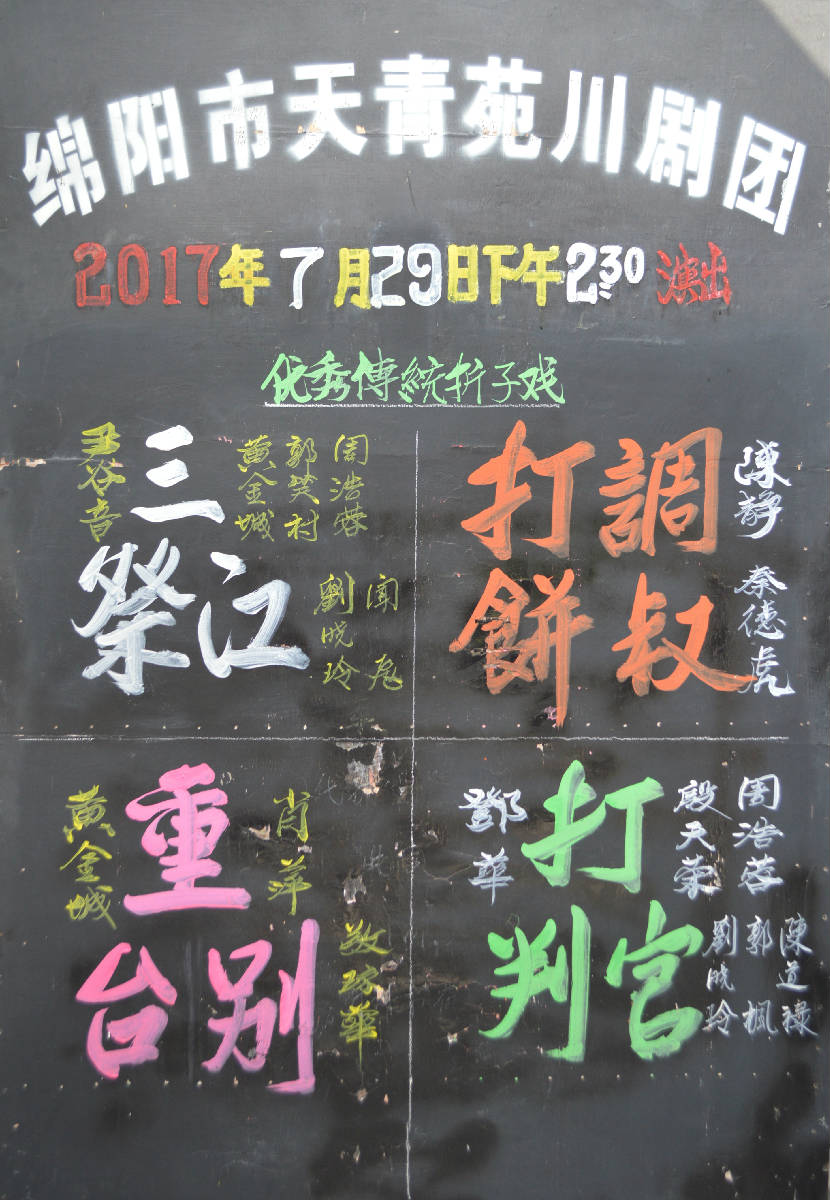 绵阳市天青苑川剧团
2017年7月29日下午2:30演出
优秀傳統折子戏
三
祭江
周浩蓉
郭笑村
黄金城
谷音
劉晓玲
調叔
打餅
陳静
蔡德虎
重
台别
肖萍
黄金城
打
判官
周浩蓉
殷天荣
鄧華
陳道禄
郭楓
劉晓玲